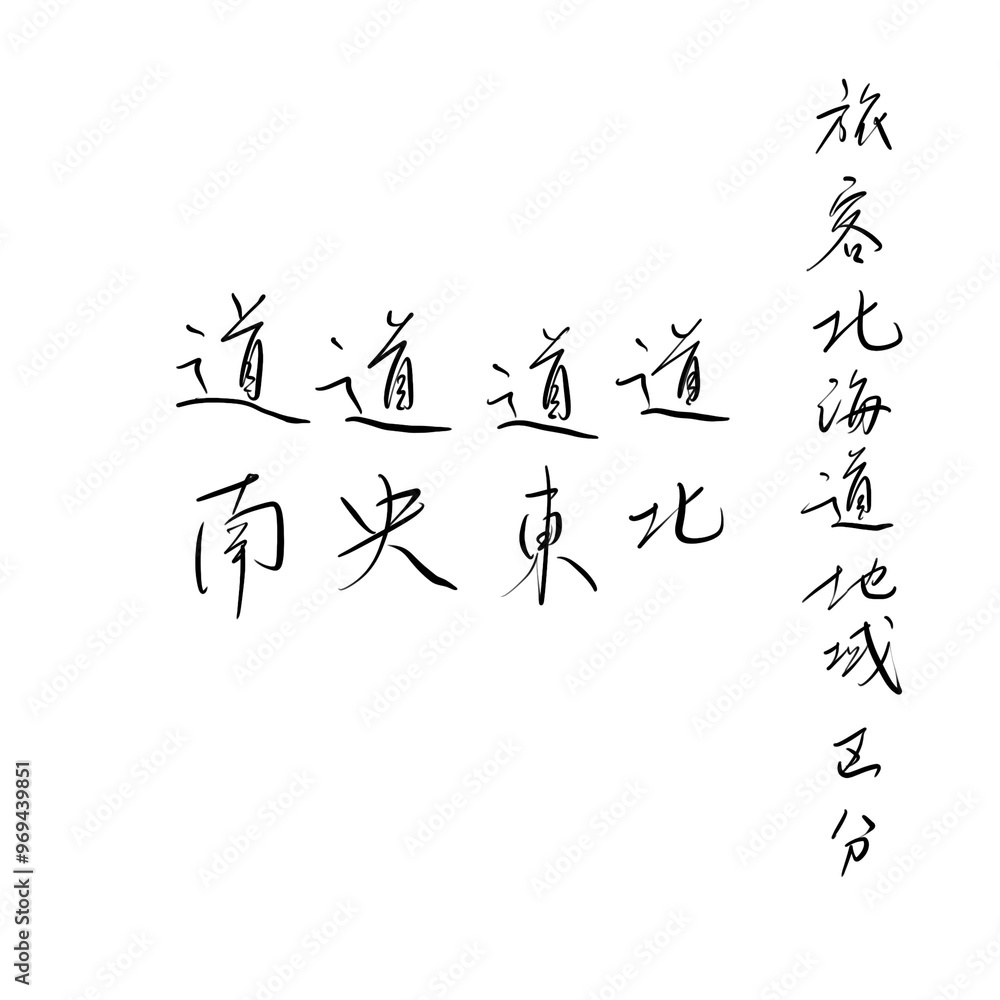 旅客北海道地域区分
道北
道東
道央
道南
Adobe Stock | #969439851